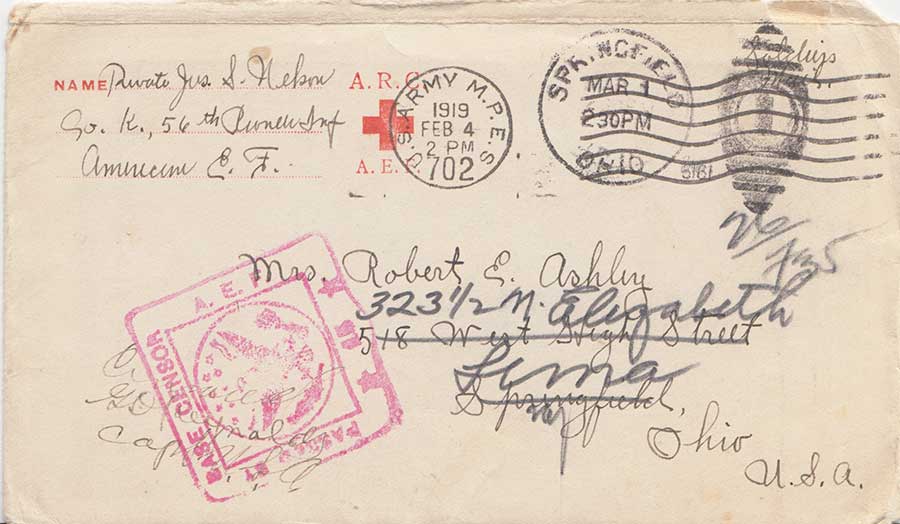 NAME Private Jas. S. Nelson
Co. K., 56th Pioneer Inf
American E. F.
A.R.C.
A.E.F.
U.S. ARMY M.P.E.S.
1919
FEB 4
2 PM
702
SPRINGFIELD
MAR 1
230PM
OHIO
1919
Soldiers
Mail
Mrs. Robert E. Ashley
323 1/2 N. Elizabeth
518 West High Street
Lima
Springfield,
Ohio
U.S.A.
A.E.F.
PASSED BY
BASE CENSOR